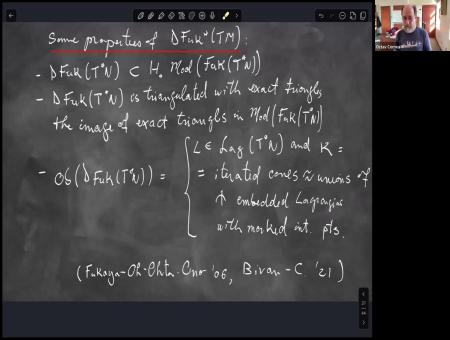 Some properties of DFuk(T*M):
- DFuk(T*N) ⊂ H₀ Mod(Fuk(T*N))
- DFuk(T*N) is triangulated with exact triangles
the image of exact triangles in Mod(Fuk(T*N))
- Ob(DFuk(T*N)) = { L ∈ Lag(T*N) and K =
= iterated cones ≈ unions of
embedded Lagrangians
with marked int. pts.
(Fukaya-Oh-Ohta-Ono '06, Biran-C. '21)